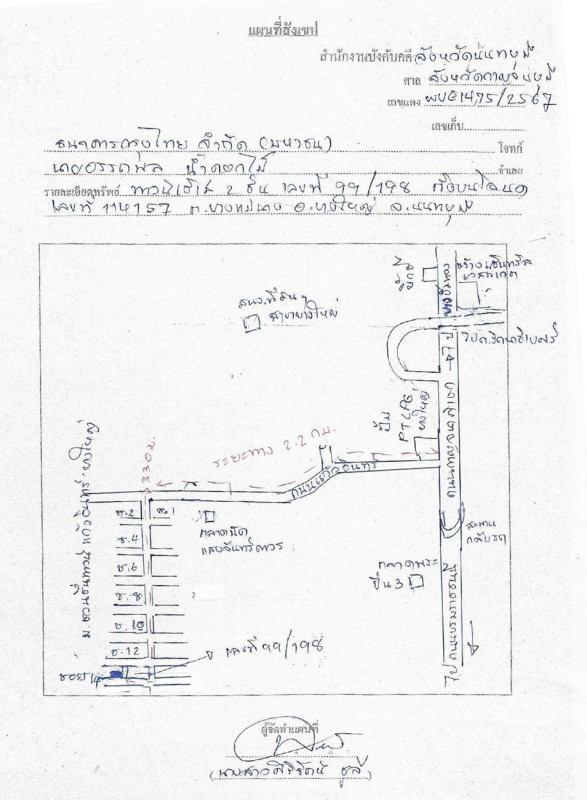 แผนที่สังเขป
สำนักงานบังคับคดี จังหวัดนนทบุรี
ศาล จังหวัดกาญจนบุรี
เลขแดง ผบE1475/2567
เลขเก็บ
ธนาคารกรุงไทย จำกัด (มหาชน) โจทก์
นายอรรถพล น้ำดอกไม้ จำเลย
รายละเอียดทรัพย์ ทาวน์เฮ้าส์ 2 ชั้น เลขที่ 99/198 ตั้งบนโฉนด
เลขที่ 114157 ต.บางแม่นาง อ.บางใหญ่ จ.นนทบุรี
ห้างเซ็นทรัล
เวสเกต
สนง.ที่ดินฯ
สาขาบางใหญ่
ไป ถ.รัตนาธิเบศร์
ถนนกาญจนาภิเษก
ปั๊ม
PT LPG
บางใหญ่
ระยะทาง 2.2 กม.
330 ม.
ถนนแก้วอินทร์
ม.ตวันชื่นทาวน์ แก้วอินทร์-บางใหญ่
ซ.2
ซ.1
ซ.4
ซ.6
ซ.8
ซ.10
ซ.12
ซอย 14
ตลาดนัด
แสงจันทร์ถาวร
สะพาน
กลับรถ
ตลาดพระ
ปิ่น 3
ไปถนนบรมราชชนนี
เลขที่ 99/198
ผู้จัดทำแผนที่
(นางสาวศิริรัตน์ ชูสี)